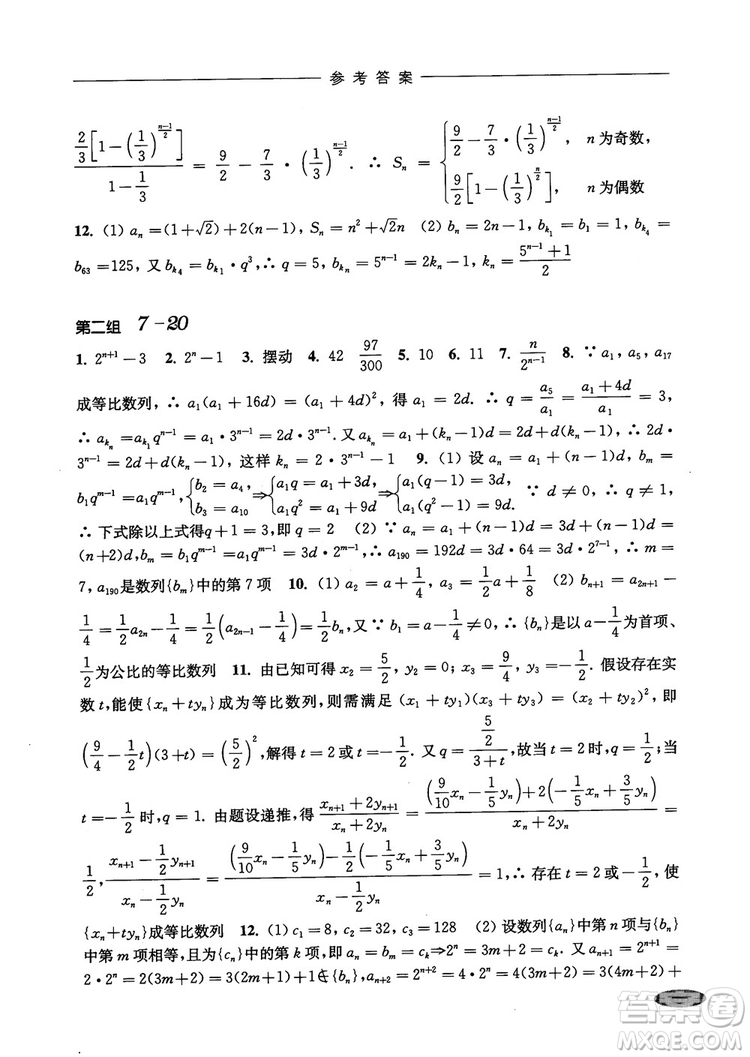 参考答案
\frac{\frac{2}{3}\left[1-\left(\frac{1}{3}\right)^{\frac{n-1}{2}}\right]}{1-\frac{1}{3}} = \frac{9}{2} - \frac{7}{3} · \left(\frac{1}{3}\right)^{\frac{n-1}{2}}. ∴ S_n = \begin{cases} \frac{9}{2}-\frac{7}{3}·\left(\frac{1}{3}\right)^{\frac{n-1}{2}}, & n 为奇数, \\ \frac{9}{2}\left[1-\left(\frac{1}{3}\right)^{\frac{n}{2}}\right], & n 为偶数 \end{cases}
12. (1) a_n=(1+√2)+2(n-1), S_n = n²+√2n (2) b_n = 2n-1, b_{k_1} = b_1 = 1, b_{k_3} =
b_{63}=125, 又 b_{k_4} = b_{k_1} · q³, ∴ q = 5, b_{k_n} = 5^{n-1} = 2k_n - 1, k_n = \frac{5^{n-1}+1}{2}
第二组 7-20
1. 2^{n+1}-3 2. 2^n-1 3. 摆动 4. 42 \frac{97}{300} 5. 10 6. 11 7. \frac{n}{2^{n-1}} 8. ∵ a_1, a_5, a_{17}
成等比数列, ∴ a_1(a_1+16d) = (a_1+4d)², 得 a_1 = 2d. ∴ q = \frac{a_5}{a_1} = \frac{a_1+4d}{a_1} = 3,
∴ a_{k_n} = a_{k_1}q^{n-1} = a_1 · 3^{n-1} = 2d · 3^{n-1}. 又 a_{k_n} = a_1+(k_n-1)d = 2d+(k_n-1)d =
k_nd+d = 2d · 3^{n-1}, 这样 k_n = 2 · 3^{n-1}-1 9. (1) 设 a_n = a_1+(n-1)d, b_m =
b_1q^{m-1} \begin{cases} b_2 = a_4, \\ b_3 = a_{10} \end{cases} ⇒ \begin{cases} a_1q = a_1+3d, \\ a_1q² = a_1+9d \end{cases} ⇒ \begin{cases} a_1(q-1) = 3d, \\ a_1(q²-1) = 9d. \end{cases} ∵ d ≠ 0, ∴ q ≠ 1.
∴ 下式除以上式得q+1 = 3, 即 q = 2 (2) ∵ a_n = a_1+(n-1)d = 3d+(n-1)d =
(n+2)d, b_m = b_1q^{m-1} = 3d · 2^{m-1}. ∴ a_{190} = 192d = 3d · 64 = 3d · 2^{7-1}, ∴ m =
7, a_{190}是数列{b_m}中的第 7 项 10. (1) a_2 = a+\frac{1}{4}, a_3 = \frac{1}{2}a+\frac{1}{8} (2) b_{n+1} = a_{2n+1}-
\frac{1}{4} = \frac{1}{2}a_{2n}-\frac{1}{4} = \frac{1}{2}\left(a_{2n-1}-\frac{1}{4}\right) = \frac{1}{2}b_n, 又∵ b_1 = a-\frac{1}{4} ≠ 0, ∴ {b_n} 是以 a-\frac{1}{4} 为首项、
\frac{1}{2}为公比的等比数列 11. 由已知可得 x_2 = \frac{5}{2}, y_2 = 0, x_3 = \frac{9}{4}, y_3 = -\frac{1}{2}. 假设存在实
数 t,能使{x_n+ty_n}成为等比数列,则需满足 (x_1+ty_1)(x_3+ty_3) = (x_2+ty_2)², 即
\left(\frac{9}{4}-\frac{1}{2}t\right)(3+t) = \left(\frac{5}{2}\right)², 解得 t = 2 或 t = -\frac{1}{2}. 又 q = \frac{\frac{5}{2}}{3+t}, 故当 t = 2 时, q = \frac{1}{2}; 当
t = -\frac{1}{2}时, q = 1. 由题设递推,得 \frac{x_{n+1}+2y_{n+1}}{x_n+2y_n} = \frac{\left(\frac{9}{10}x_n-\frac{1}{5}y_n\right)+2\left(-\frac{1}{5}x_n+\frac{3}{5}y_n\right)}{x_n+2y_n} =
\frac{1}{2}, \frac{x_{n+1}-\frac{1}{2}y_{n+1}}{x_n-\frac{1}{2}y_n} = \frac{\left(\frac{9}{10}x_n-\frac{1}{5}y_n\right)-\frac{1}{2}\left(-\frac{1}{5}x_n+\frac{3}{5}y_n\right)}{x_n-\frac{1}{2}y_n} = 1, ∴ 存在 t = 2 或 t = -\frac{1}{2}, 使
{x_n+ty_n}成等比数列 12. (1) c_1 = 8, c_2 = 32, c_3 = 128 (2) 设数列{a_n}中第 n 项与{b_n}
中第 m 项相等,且为{c_n}中的第 k 项,即 a_n = b_m = c_k⇒2^n = 3m+2 = c_k. 又∵ a_{n+1} = 2^{n+1} =
2 · 2^n = 2(3m+2) = 3(2m)+4 = 3(2m+1)+1∉{b_n}, a_{n+2} = 2^{n+2} = 4 · 2^n = 4(3m+2) = 3(4m+2)+
答案圈